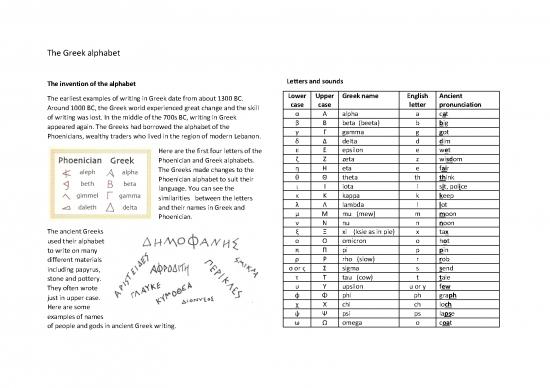 The Greek alphabet
The invention of the alphabet
The earliest examples of writing in Greek date from about 1300 BC.
Around 1000 BC, the Greek world experienced great change and the skill
of writing was lost. In the middle of the 700s BC, writing in Greek
appeared again. The Greeks had borrowed the alphabet of the
Phoenicians, wealthy traders who lived in the region of modern Lebanon.
Phoenician Greek
aleph Α alpha
beth Β beta
gimmel Γ gamma
daleth Δ delta
Here are the first four letters of the
Phoenician and Greek alphabets.
The Greeks made changes to the
Phoenician alphabet to suit their
language. You can see the
similarities between the letters
and their names in Greek and
Phoenician.
The ancient Greeks
used their alphabet
to write on many
different materials
including papyrus,
stone and pottery.
They often wrote
just in upper case.
Here are some
examples of names
of people and gods in ancient Greek writing.
ΔΗΜΟΦΑΝΗΣ
ΑΡΙΣΤΕΙΔΕΣ
ΑΦΡΟΔΙΤΗ
ΠΕΡΙΚΛΕΣ
ΣΜΙΚΡΑ
ΓΛΑΥΚΕ
ΚΥΜΟΘΕΑ
ΔΙΟΝΥΣΟΣ
Letters and sounds
Lower case Upper case Greek name English letter Ancient pronunciation
α Α alpha a cat
β Β beta (beeta) b big
γ Γ gamma g got
δ Δ delta d dim
ε Ε epsilon e wet
ζ Ζ zeta z wisdom
η Η eta e fair
θ Θ theta th think
ι Ι iota I sit, police
κ Κ kappa k keep
λ Λ lambda l lot
μ Μ mu (mew) m moon
ν Ν nu n noon
ξ Ξ xi (ksie as in pie) x tax
ο Ο omicron o hot
π Π pi p pin
ρ Ρ rho (row) r rob
σ or ς Σ sigma s send
τ Τ tau (cow) t tale
υ Υ upsilon u or y few
φ Φ phi ph graph
χ Χ chi ch loch
ψ Ψ psi ps lapse
ω Ω omega o coat